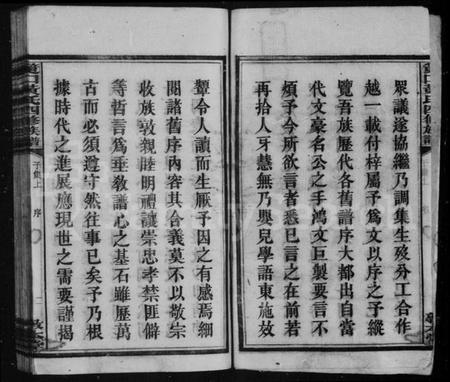 眾議遂協繼乃調集生歿分工合作
越一載付梓屬予爲文以序之予縱
覽吾族歷代各舊譜序大都出自當
代文豪名公之手鴻文巨製要言不
煩予今所欲言者悉已言之在前若
再拾人牙慧無乃嬰兒學語東施放
顰令人讀而生厭予因之有感焉細
閱諸舊序內容其合義莫不以敬宗
收族敦親睦明禮讓崇忠孝禁匪僻
等哲言爲垂敎議心之基石雖歷萬
古而必須遵守然往事已矣予乃根
據時代之進展應現世之需要謹揭
黃氏四修族譜
子集上
序